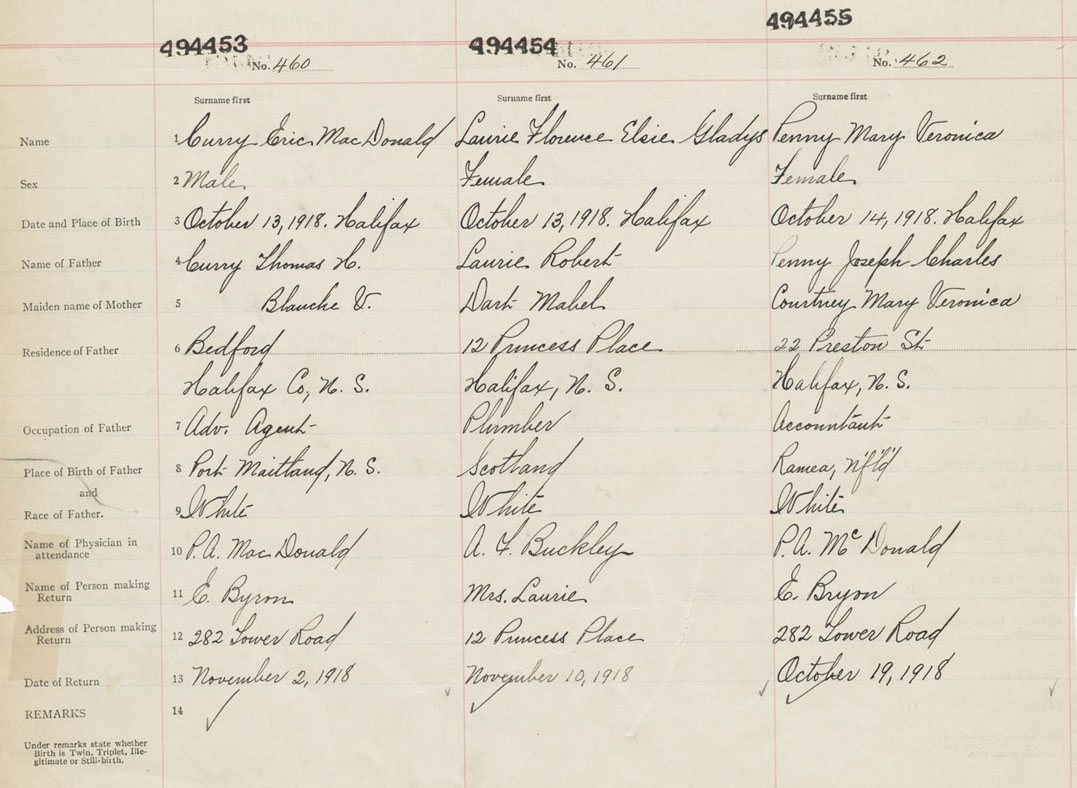 494453 494454 494455
No. 460 No. 461 No. 462
Surname first Surname first Surname first
Name 1 Curry Eric MacDonald Laurie Florence Elsie Gladys Penny Mary Veronica
Sex 2 Male Female Female
Date and Place of Birth 3 October 13, 1918. Halifax October 13, 1918. Halifax October 14, 1918. Halifax
Name of Father 4 Curry Thomas H. Laurie Robert Penny Joseph Charles
Maiden name of Mother 5 Blanche V. Dart Mabel Courtney Mary Veronica
Residence of Father 6 Bedford 12 Princess Place 22 Preston St
Halifax Co, N. S. Halifax, N. S. Halifax, N. S.
Occupation of Father 7 Adv. Agent Plumber Accountant
Place of Birth of Father 8 Port Maitland, N. S. Scotland Ramea, N'f'l'd
and
Race of Father. 9 White White White
Name of Physician in
attendance 10 P. A. MacDonald A. F. Buckley P. A. McDonald
Name of Person making
Return 11 E. Byron Mrs. Laurie E. Bryon
Address of Person making
Return 12 282 Tower Road 12 Princess Place 282 Tower Road
Date of Return 13 November 2, 1918 November 10, 1918 October 19, 1918
REMARKS 14
Under remarks state whether
Birth is Twin, Triplet, Ille-
gitimate or Still-birth.